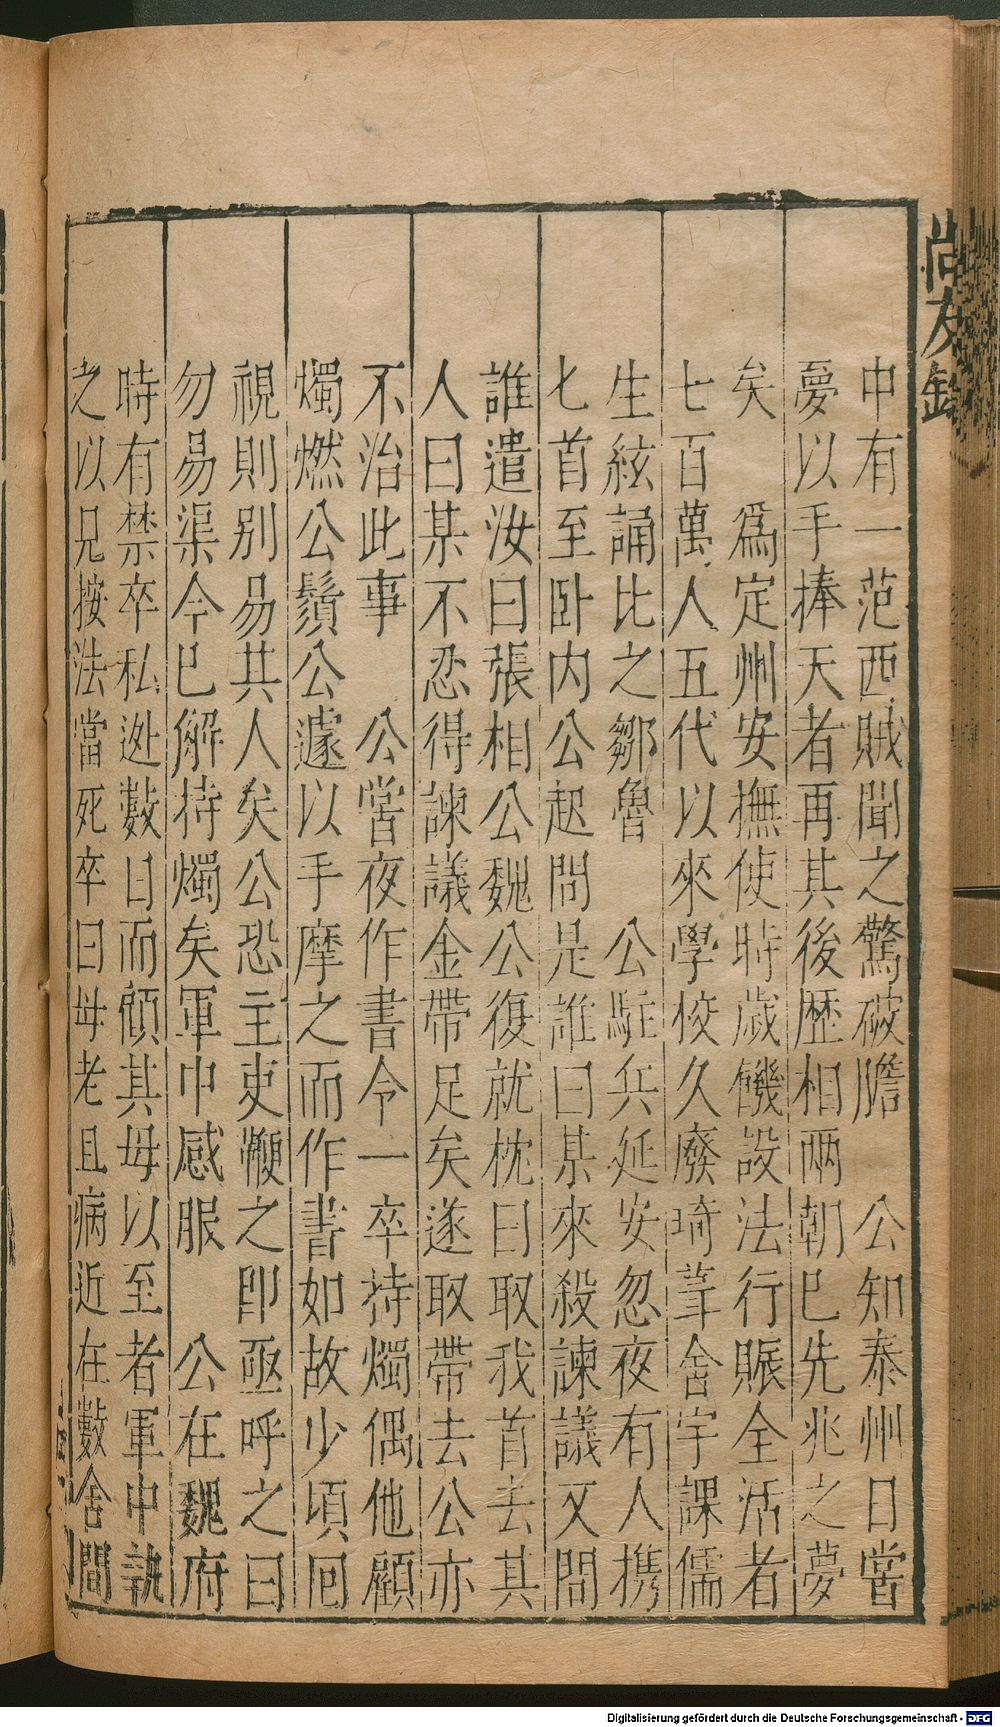 尚友錄
中有一范西賊聞之驚破膽　公知泰州日嘗
夢以手捧天者再其後歷相兩朝已先兆之夢
矣　爲定州安撫使時歲饑設法行賑全活者
七百萬人五代以來學校久廢琦葺舍宇課儒
生絃誦比之鄒魯　公駐兵延安忽夜有人携
匕首至卧内公起問是誰曰某來殺諫議又問
誰遣汝曰張相公魏公復就枕曰取我首去其
人曰某不忍得諫議金帶足矣遂取帶去公亦
不治此事　公嘗夜作書令一卒持燭偶他顧
燭燃公鬚公遽以手摩之而作書如故少頃回
視則別易其人矣公恐主吏鞭之即亟呼之曰
勿易渠今已解持燭矣軍中感服　公在魏府
時有禁卒私逃數日而顧其母以至者軍中執
之以見按法當死卒曰母老且病近在數舍間
Digitalisierung gefördert durch die Deutsche Forschungsgemeinschaft - DFG